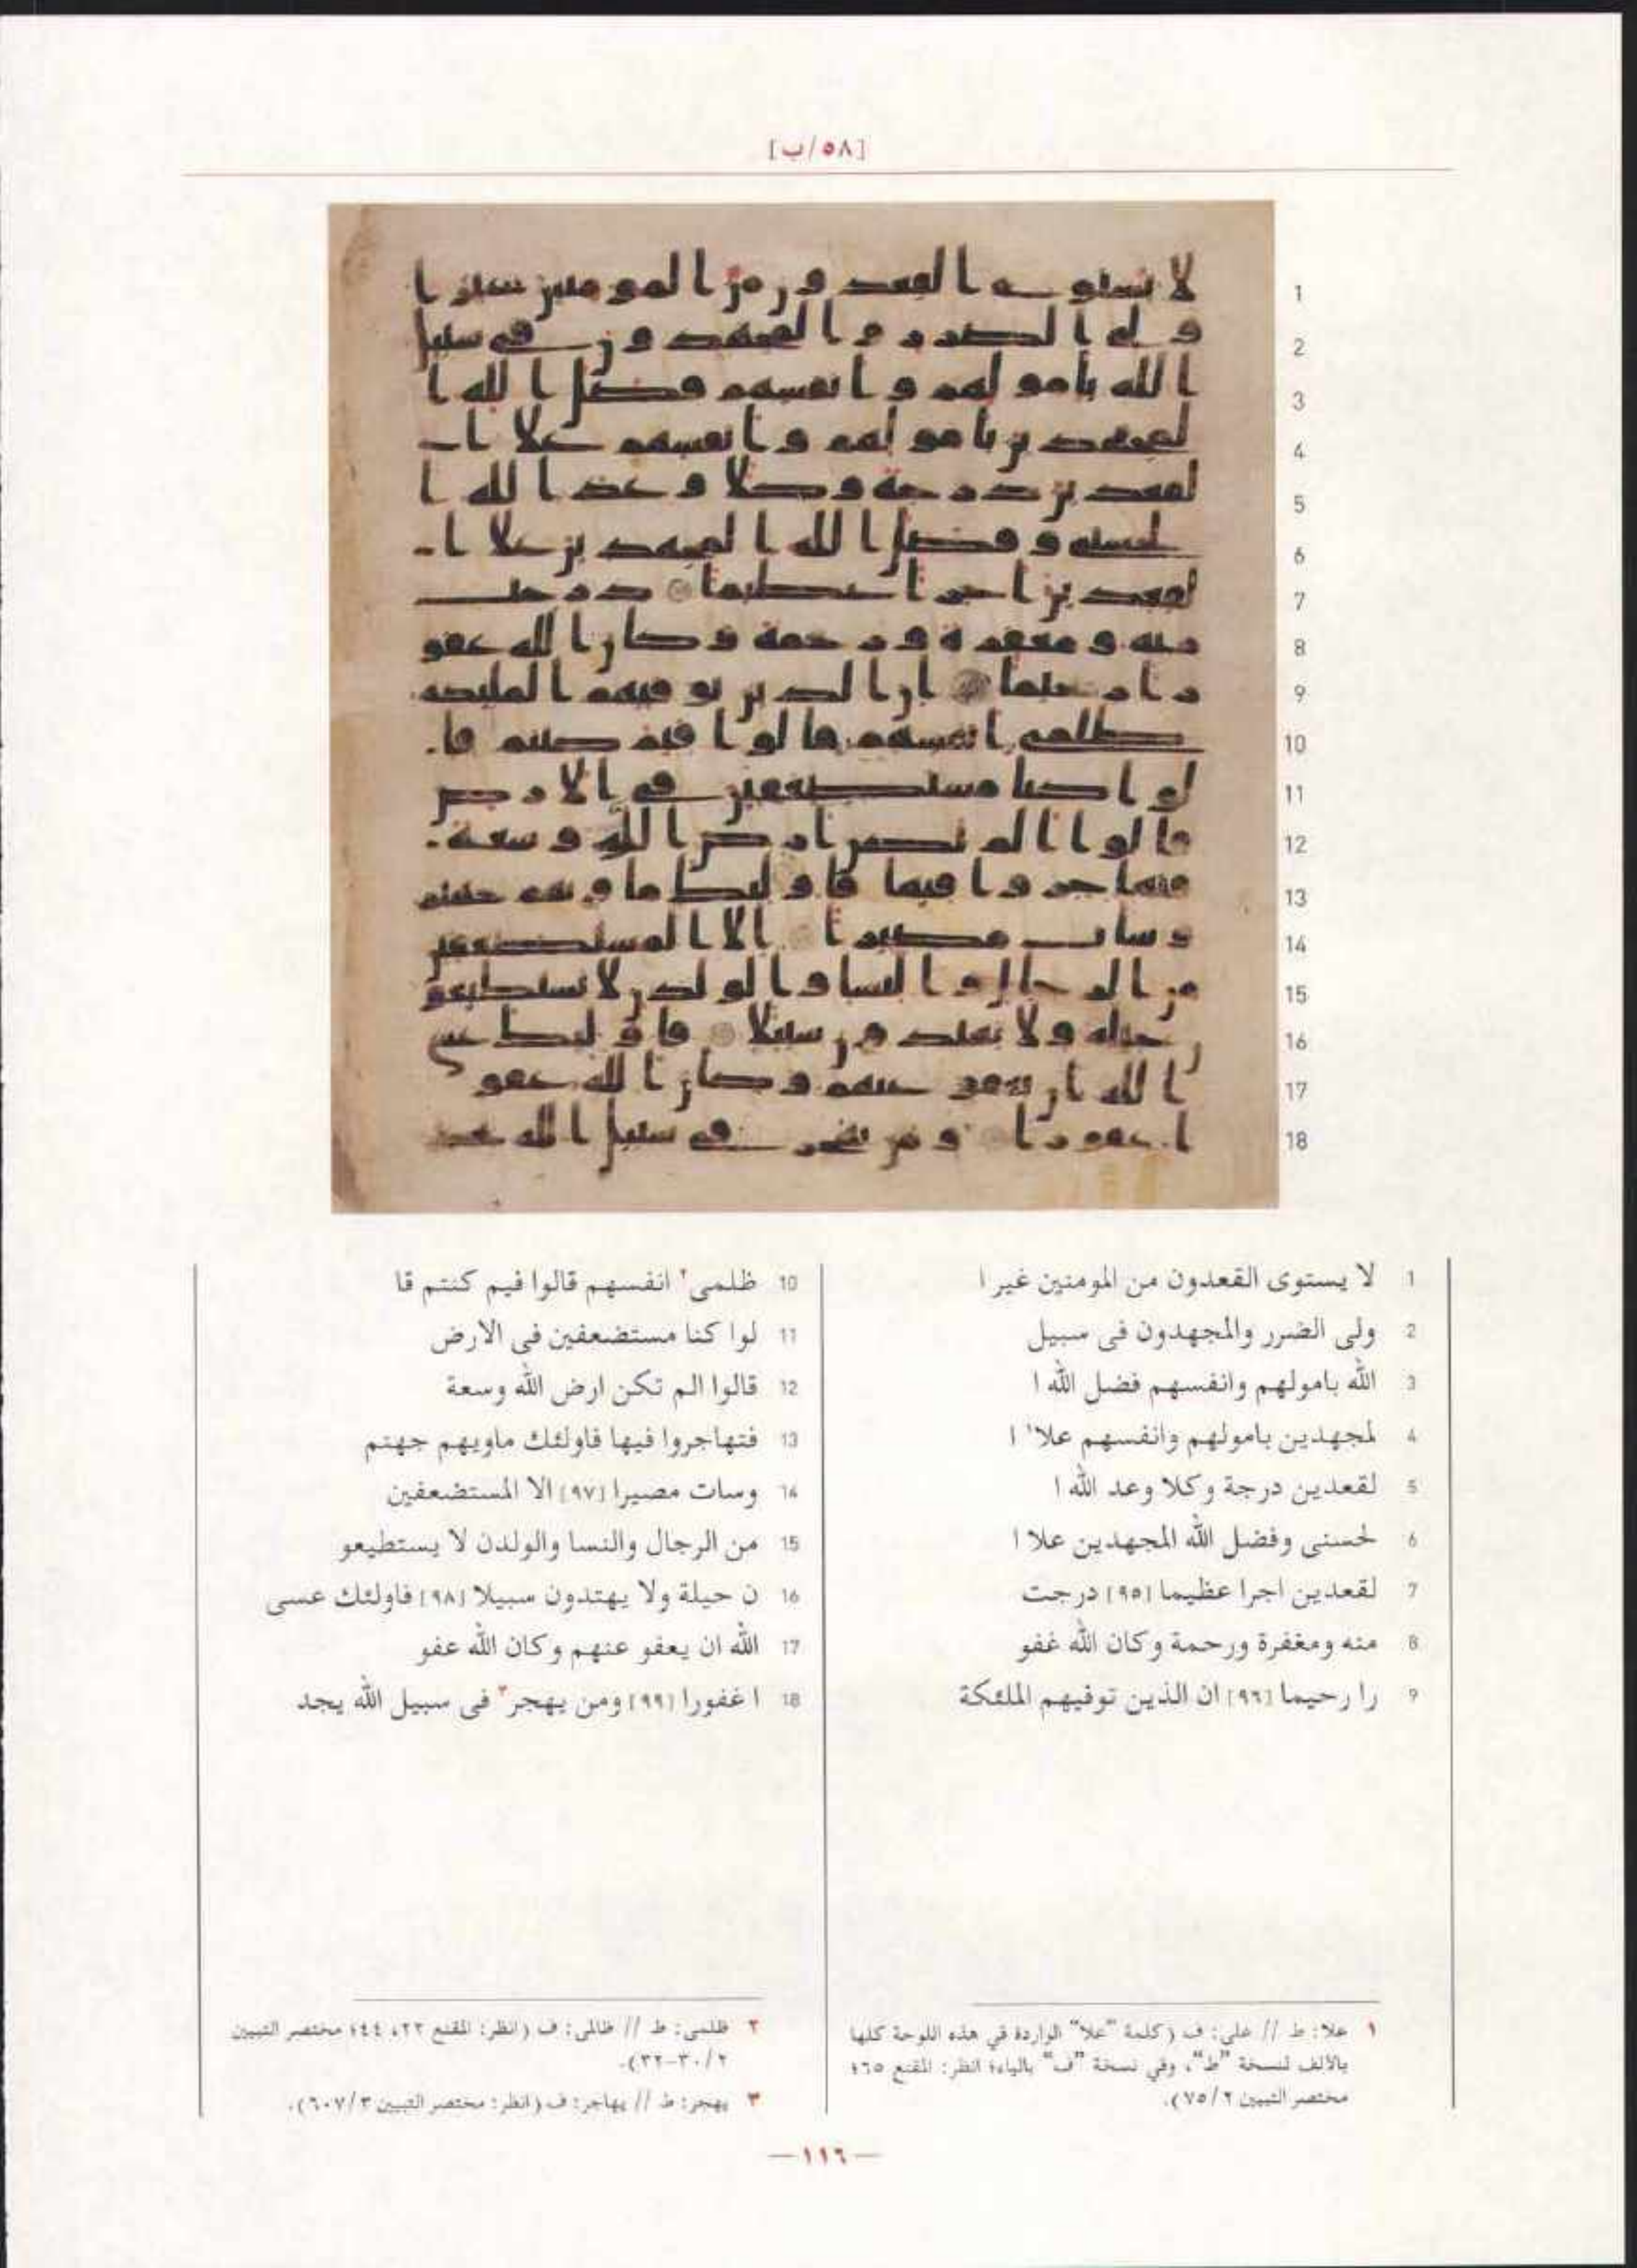 [٥٨/ب]
1 لا يستوى القعدون من المومنين غير ا
2 ولى الضرر والمجهدون فى سبيل
3 الله بامولهم وانفسهم فضل الله ا
4 لمجهدين بامولهم وانفسهم علا١ ا
5 لقعدين درجة وكلا وعد الله ا
6 لحسنى وفضل الله المجهدين علا ا
7 لقعدين اجرا عظيما [٩٥] درجت
8 منه ومغفرة ورحمة وكان الله غفو
9 را رحيما [٩٦] ان الذين توفيهم الملئكة
10 ظلمى٢ انفسهم قالوا فيم كنتم قا
11 لوا كنا مستضعفين فى الارض
12 قالوا الم تكن ارض الله وسعة
13 فتهاجروا فيها فاولئك ماويهم جهنم
14 وسات مصيرا [٩٧] الا المستضعفين
15 من الرجال والنسا والولدن لا يستطيعو
16 ن حيلة ولا يهتدون سبيلا [٩٨] فاولئك عسى
17 الله ان يعفو عنهم وكان الله عفو
18 ا غفورا [٩٩] ومن يهجر٣ فى سبيل الله يجد
١ علا: ط // على: ف (كلمة "علا" الواردة في هذه اللوحة كلها
بالألف لنسخة "ط"، وفي نسخة "ف" بالياء؛ انظر: المقنع ٦٥؛
مختصر التبيين ٧٥/٢).
٢ ظلمى: ط // ظالمى: ف (انظر: المقنع ٢٢، ٤٤؛ مختصر التبيين
٣٠/٢-٣٢).
٣ يهجر: ط // يهاجر: ف (انظر: مختصر التبيين ٦٠٧/٣).
—١١٦—